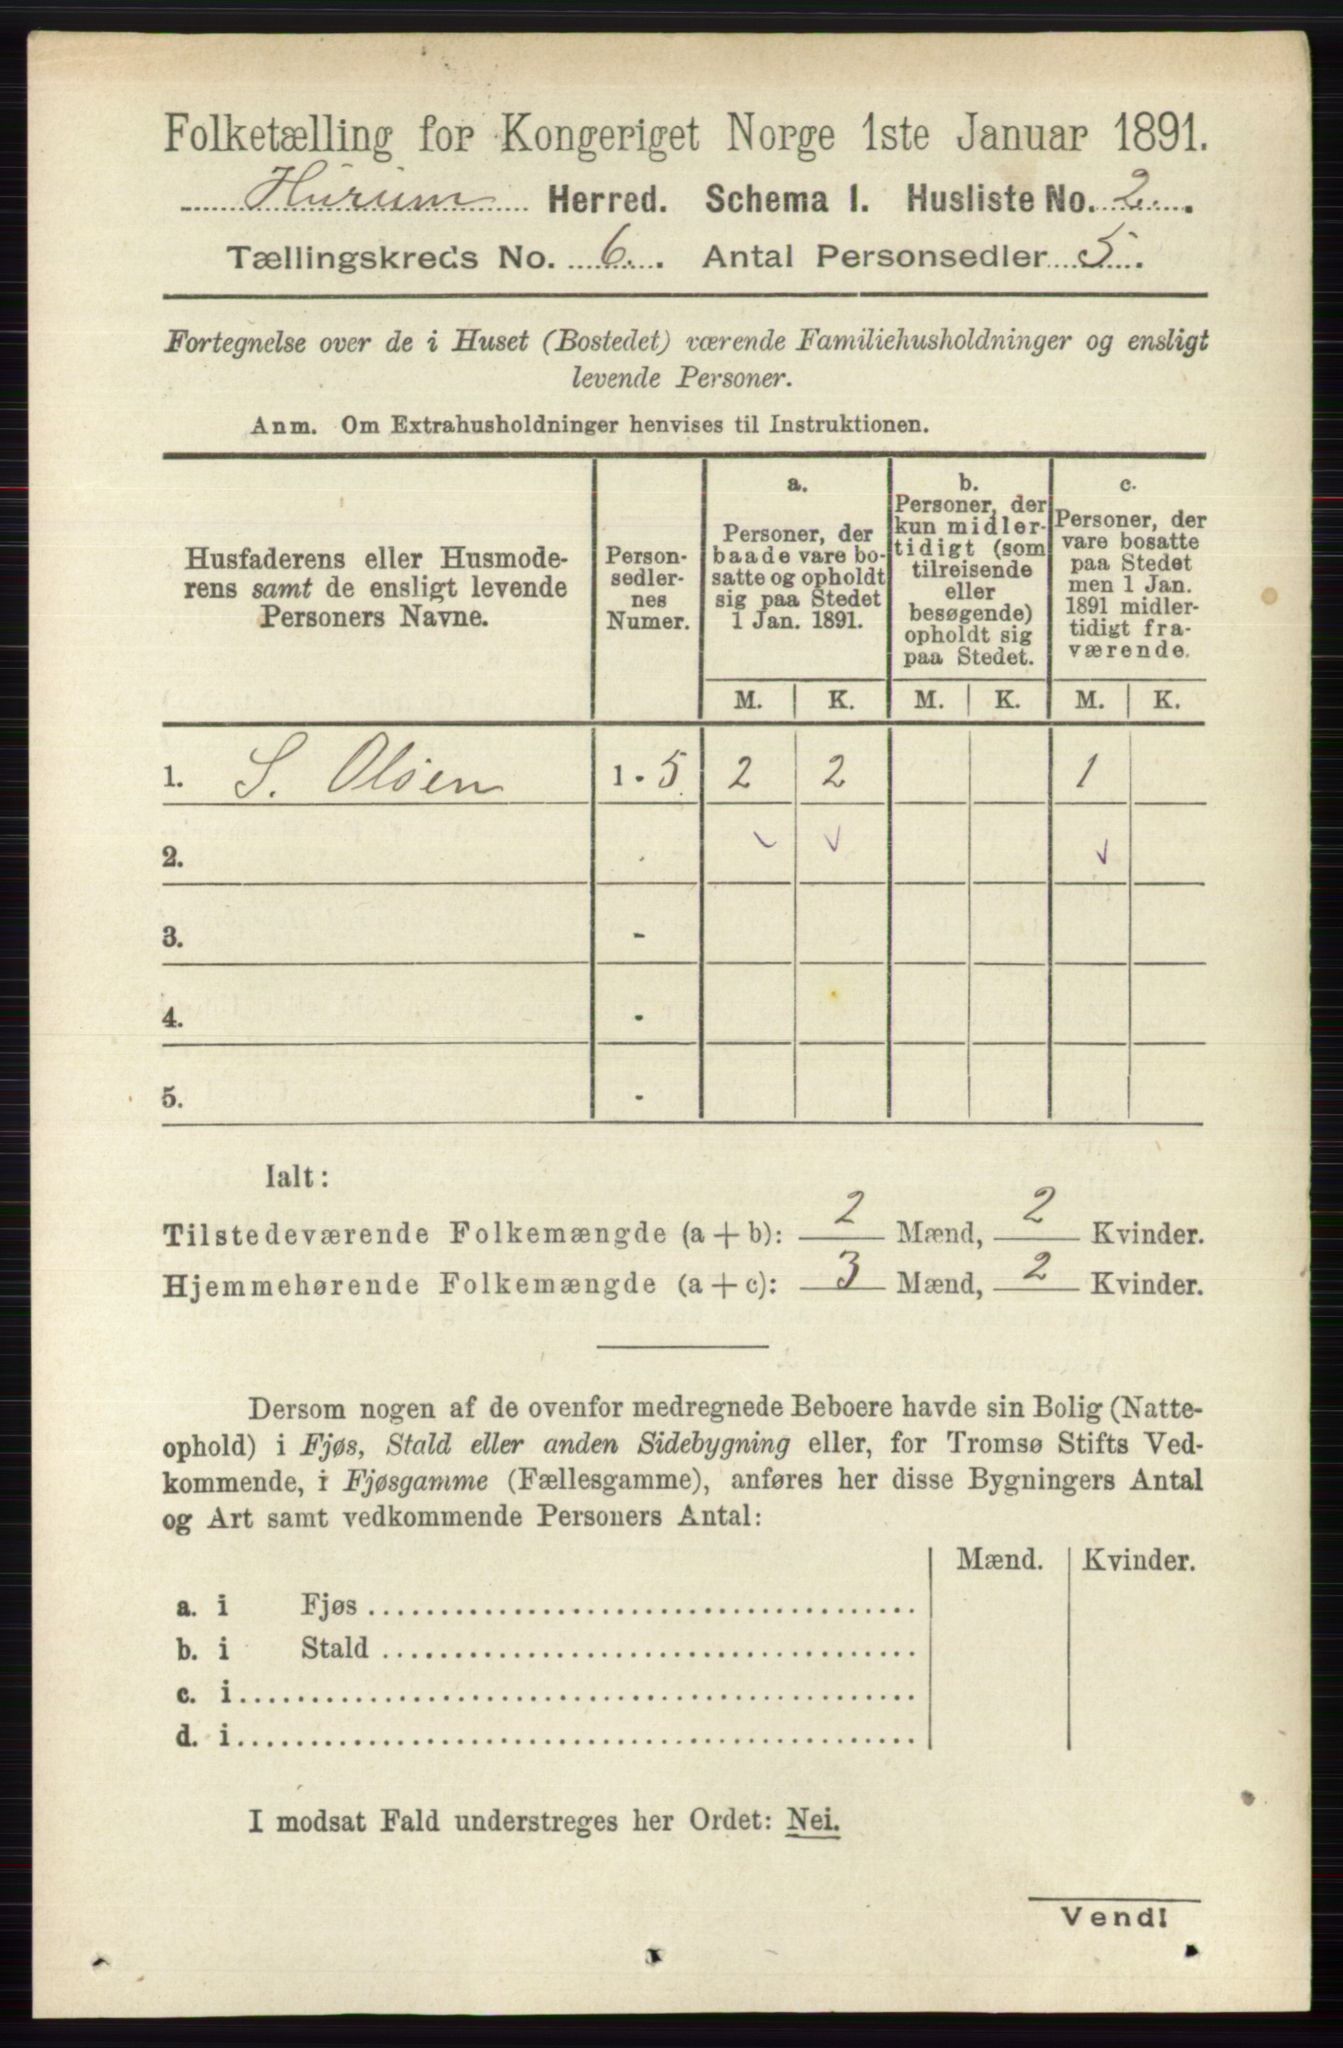 Folketælling for Kongeriget Norge 1ste Januar 1891.
Hurum Herred. Schema I. Husliste No. 2.
Tællingskreds No. 6. Antal Personsedler 5.
Fortegnelse over de i Huset (Bostedet) værende Familiehusholdninger og ensligt
levende Personer.
Anm. Om Extrahusholdninger henvises til Instruktionen.
Husfaderens eller Husmode-
rens samt de ensligt levende
Personers Navne.
Person-
sedler-
nes
Numer.
a.
Personer, der
baade vare bo-
satte og opholdt
sig paa Stedet
1 Jan. 1891.
b.
Personer, der
kun midler-
tidigt (som
tilreisende
eller
besøgende)
opholdt sig
paa Stedet.
c.
Personer, der
vare bosatte
paa Stedet
men 1 Jan.
1891 midler-
tidigt fra-
værende.
M. K. M. K. M. K.
1. S. Olsen 1 - 5 2 2 1
2. - ✓ ✓ ✓
3. -
4. -
5. -
Ialt:
Tilstedeværende Folkemængde (a + b): 2 Mænd, 2 Kvinder.
Hjemmehørende Folkemængde (a + c): 3 Mænd, 2 Kvinder.
Dersom nogen af de ovenfor medregnede Beboere havde sin Bolig (Natte-
ophold) i Fjøs, Stald eller anden Sidebygning eller, for Tromsø Stifts Ved-
kommende, i Fjøsgamme (Fællesgamme), anføres her disse Bygningers Antal
og Art samt vedkommende Personers Antal:
Mænd. Kvinder.
a. i Fjøs
b. i Stald
c. i
d. i
I modsat Fald understreges her Ordet: Nei.
Vend!